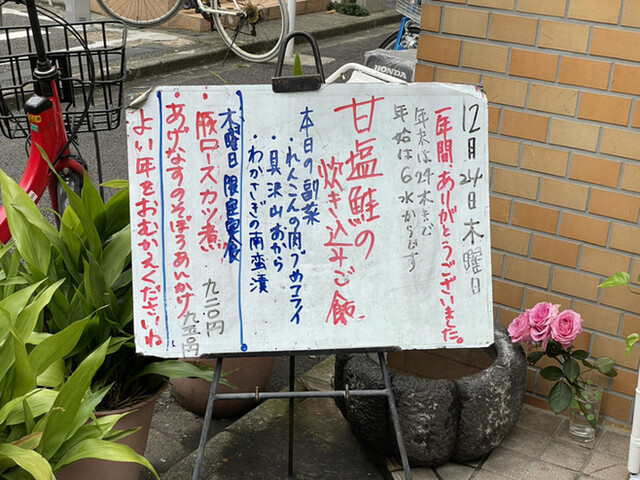 12月24日木曜日
一年間、ありがとうございました。
年末は24木まで
年始は6水からです
甘塩鮭の
炊き込みご飯
本日の副菜
・れんこんの肉づめフライ
・具沢山おから
・わかさぎの南蛮漬
木曜日 限定定食
・豚ロースカツ煮 九二〇円
・あげなすのそぼろあんかけ 九五〇円
よい年をおむかえくださいね
HONDA